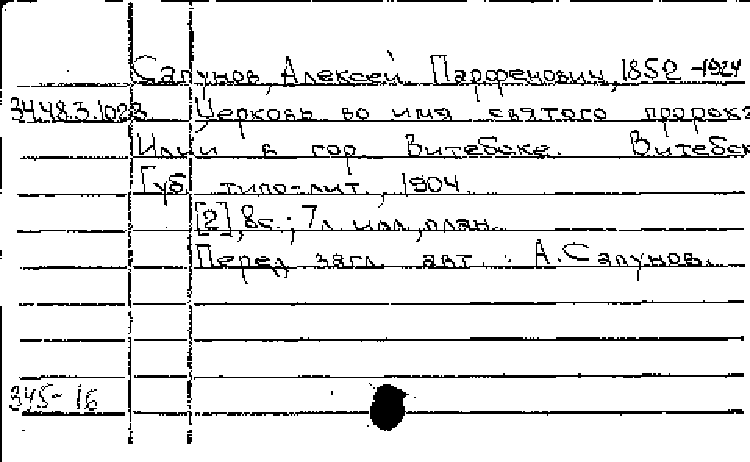 Сапунов, Алексей Парфенович, 1852-1924
34.48.3.1023 Церковь во имя святого пророка
Илии в гор. Витебске. Витебск
Губ. типо-лит., 1904.
[2], 8с.; 7л. илл., план.
Перед загл. авт.: А. Сапунов.
345-16